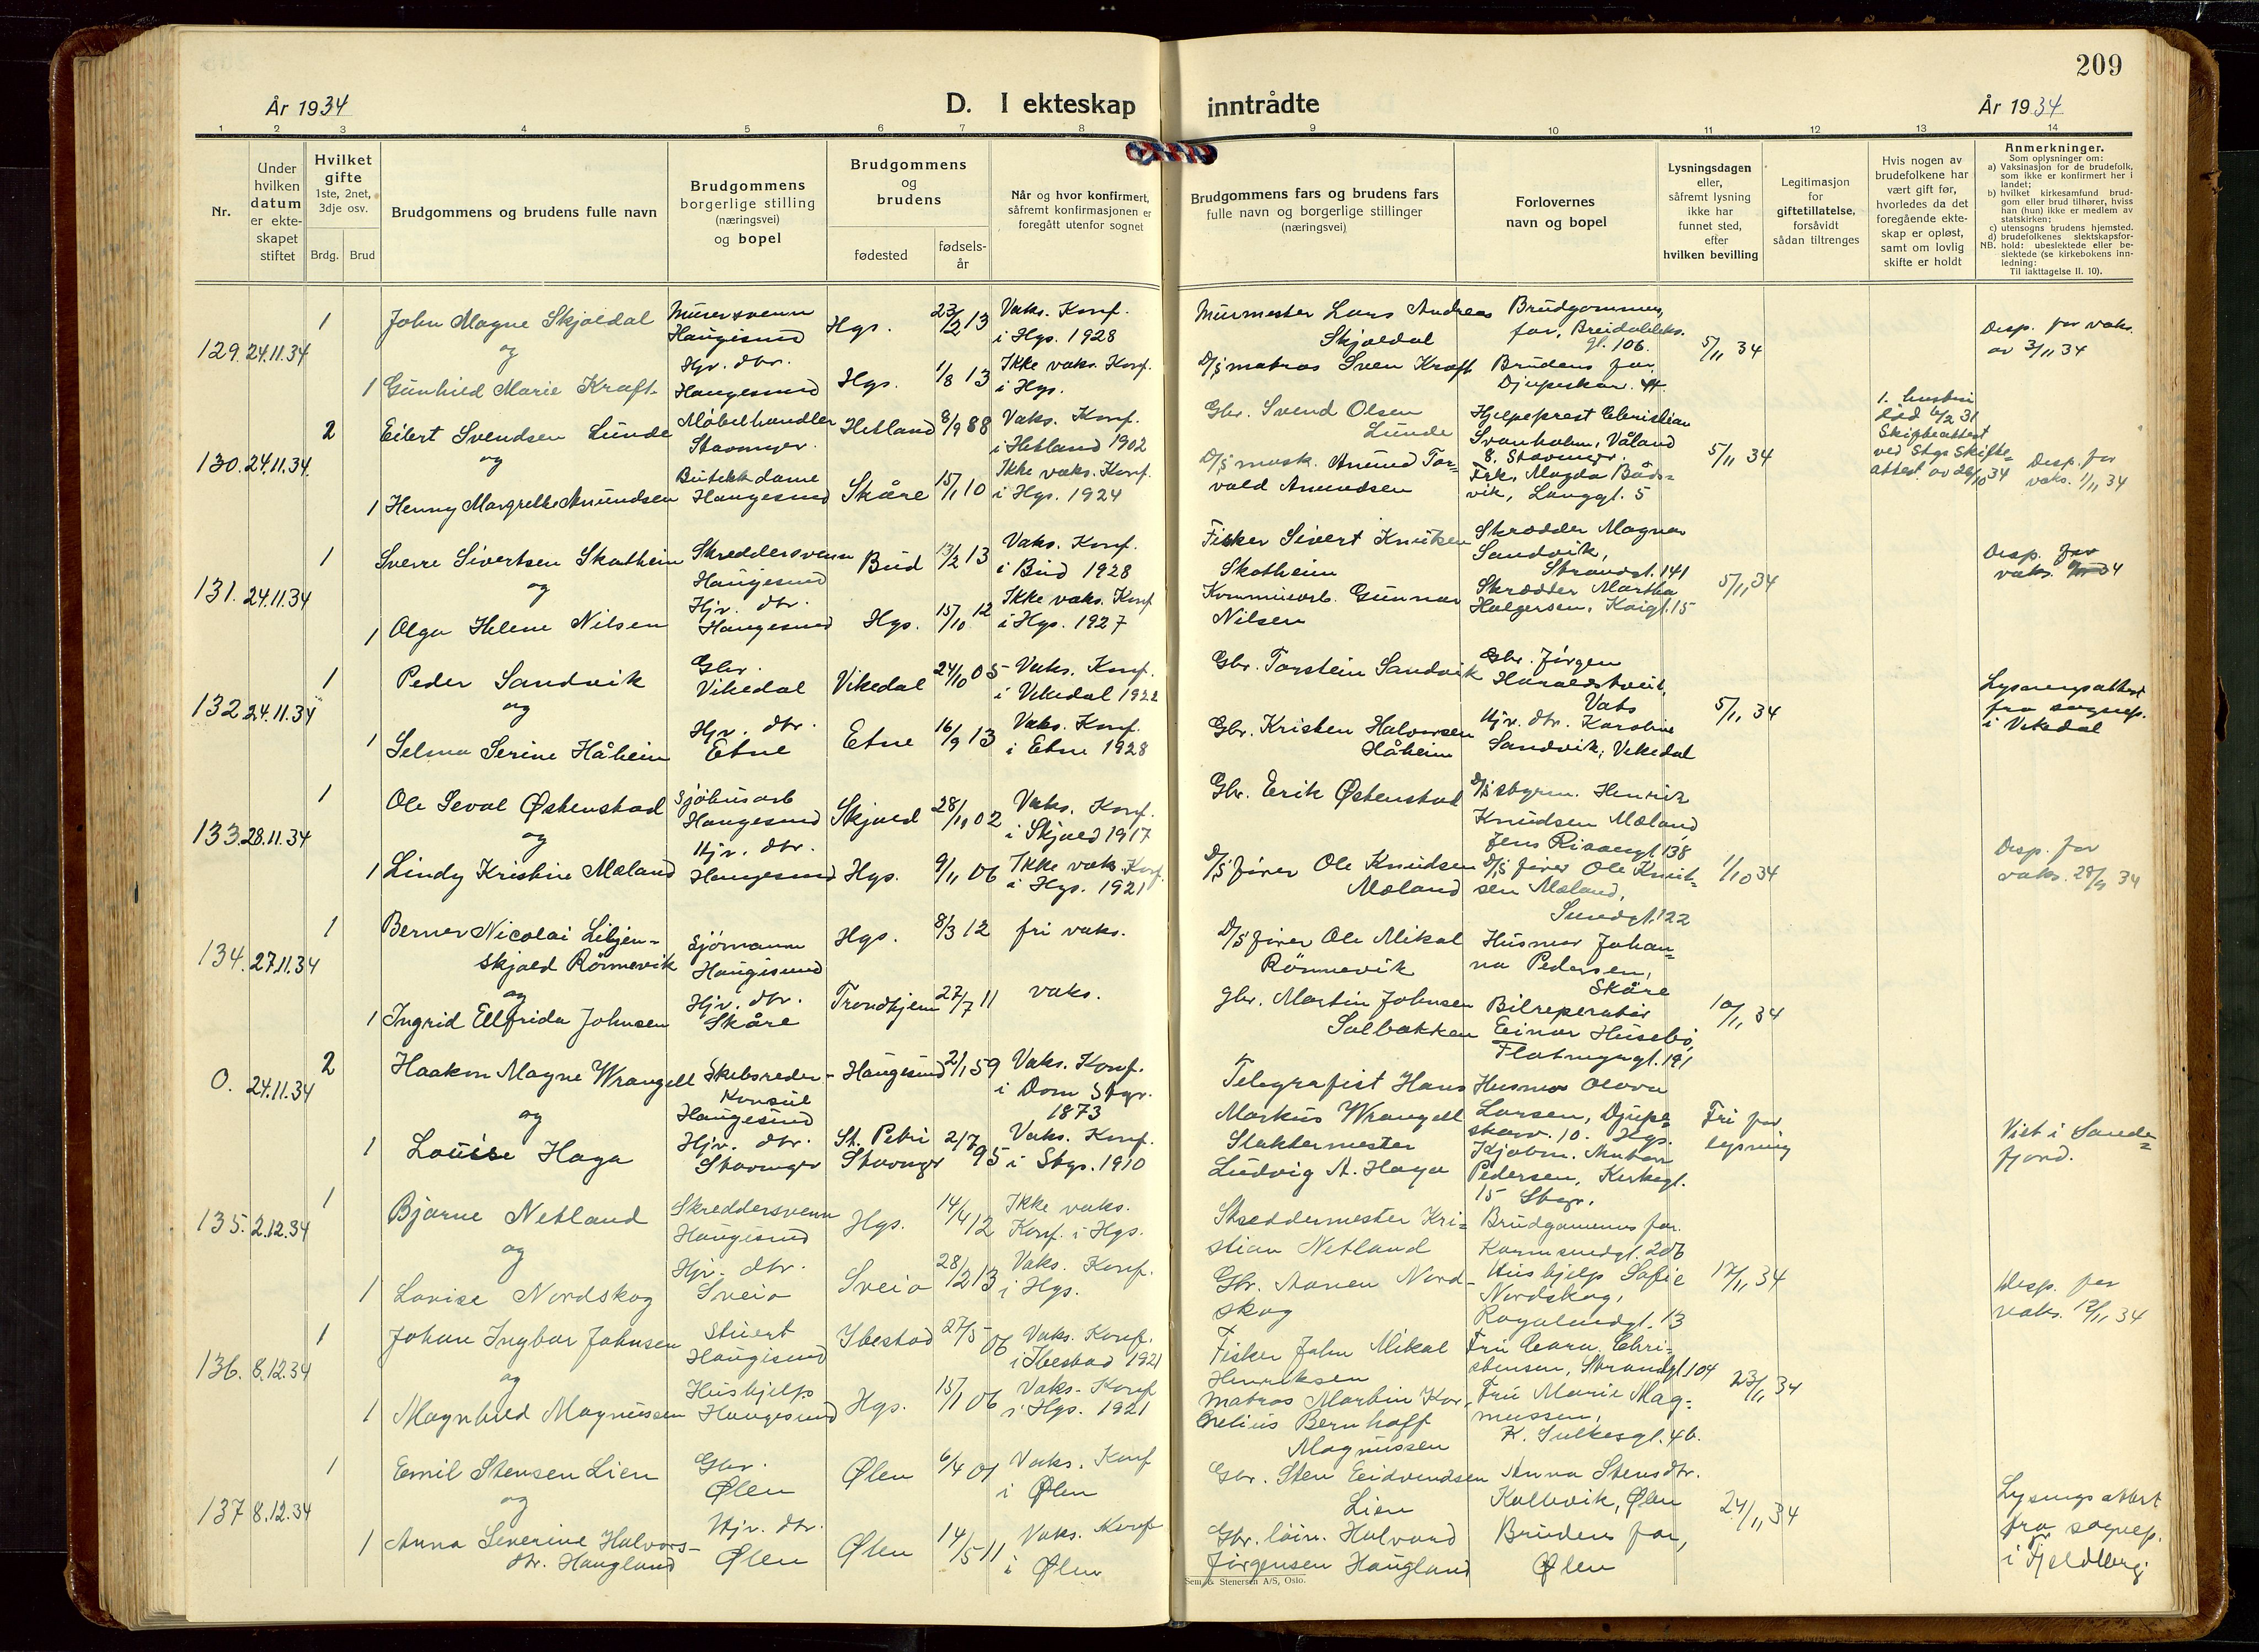 209
År 1934
D. I ekteskap inntrådte
År 1934
1 2 3 4 5 6 7 8 9 10 11 12 13 14
Nr.
Under hvilken datum er ekte-skapet stiftet
Hvilket gifte
1ste, 2net, 3dje osv.
Brdg. Brud
Brudgommens og brudens fulle navn
Brudgommens borgerlige stilling (næringsvei) og bopel
Brudgommens og brudens
fødested
fødsels-år
Når og hvor konfirmert, såfremt konfirmasjonen er foregått utenfor sognet
Brudgommens fars og brudens fars fulle navn og borgerlige stillinger (næringsvei)
Forlovernes navn og bopel
Lysningsdagen eller, såfremt lysning ikke har funnet sted, efter hvilken bevilling
Legitimasjon for giftetillatelse, forsåvidt sådan tiltrenges
Hvis nogen av brudefolkene har vært gift før, hvorledes da det foregående ekte-skap er opløst, samt om lovlig skifte er holdt
Anmerkninger.
Som oplysninger om:
a) Vaksinasjon for de brudefolk, som ikke er konfirmert her i landet;
b) hvilket kirkesamfund brud-gom eller brud tilhører, hviss han (hun) ikke er medlem av statskirken;
c) utensogns brudens hjemsted.
d) brudefolkenes slektskapsfor-hold: ubeslektede eller be-slektede (se kirkebokens inn-ledning:
NB.
Til iakttagelse II. 10).
129. 24.11.34
1 John Magne Skjoldal
Murersvenn
Haugesund
Hgs. 23/2 13
Vaks. Konf.
i Hgs. 1928
Murmester Lars Andreas
Skjoldal
Brudgommens
far, Breidablks.
gl. 106.
5/11 34
Disp. for vaks.
av 3/11 34
og
1 Gunhild Marie Kraft
Hjv. dtr.
Haugesund
Hgs. 1/8 13
Ikke vaks. Konf.
i Hgs.
D/s matros Sven Kraft
Brudens far,
Djupeskar. 44.
130. 24.11.34.
2 Eilert Svendsen Lunde
Møbelhandler
Stavanger.
Hetland 8/9 88
Vaks. Konf.
i Hetland 1902
Gbr. Svend Olsen
Lunde
Hjelpeprest Christian
Svanholm, Våland
8. Stavanger.
5/11 34
1. hustru
død 6/2 31
Skifteattest
ved Stgs Skifte-
attest av 26/10 34
Disp. for
vaks. 1/11 34
og
1 Henny Margrethe Amundsen
Butikkdame
Haugesund
Skåre 15/1 10
Ikke vaks. Konf.
i Hgs. 1924
D/s mask. Amund Tor-
vald Amundsen
Frk. Magda Båds-
vik, Langgt. 5
131. 24.11.34
1 Sverre Sivertsen Skotheim
Skreddersvenn
Haugesund
Bud 13/2 13
Vaks. Konf.
i Bud 1928
Fisker Sivert Knutsen
Skotheim
Skrædder Magnar
Sandvik,
Strandgt. 141
5/11 34
Disp. for
vaks.
og
1 Olga Helene Nilsen
Hjv. dtr.
Haugesund
Hgs. 15/10 12
Ikke vaks. Konf
i Hgs. 1927
Kommunearb. Gunnar
Nilsen
Skrædder Martha
Holgersen, Kaigt. 15
132 24.11.34
1 Peder Sandvik
Gbr.
Vikedal
Vikedal 24/10 05
Vaks. Konf.
i Vikedal 1922
Gbr. Torstein Sandvik
Gbr. Jørgen
Haraldstveit,
Vats
5/11 34
Lysningsattest
fra sognep.
i Vikedal
og
1 Selma Serine Håheim
Hjv. dtr.
Etne
Etne 16/9 13
Vaks. Konf.
i Etne 1928
Gbr. Kristen Halvorsen
Håheim
Hjv. dtr. Karoline
Sandvik, Vikedal
133. 28.11.34
1 Ole Seval Østenstad
Sjøhusarb
Haugesund
Skjold 28/11 02
Vaks. Konf.
i Skjold 1917
Gbr. Erik Østenstad
D/s styrm. Henrik
Knudsen Mæland
Jens Risøengt. 138
1/10 34
Disp. for
vaks. 28/9 34
og
1 Lindy Kristine Mæland
Hjv. dtr.
Haugesund
Hgs. 9/11 06
Ikke vaks Konf
i Hgs. 1921
D/s fører Ole Knudsen
Mæland
D/s fører Ole Knut-
sen Mæland,
Sundgt. 122
134. 27.11.34
1 Berner Nicolai Liljen-
skjold Rønnevik
Sjømann
Haugesund
Hgs. 8/3 12
fri vaks.
D/s fører Ole Mikal
Rønnevik
Husmor Johan-
na Pedersen,
Skåre
10/11 34
og
1 Ingrid Elfrida Johnsen
Hjv. dtr.
Skåre
Trondhjem 27/7 11
vaks.
gbr. Martin Johnsen
Solbakken
Bilreperatør
Einar Husebø,
Flotmyrgt. 191
0. 24.11.34
2 Haakon Magne Wrangell
Skibsreder -
Konsul
Haugesund
Haugesund 2/1 59
Vaks. Konf.
i Dom Stgr.
1873
Telegrafist Hans
Markus Wrangell
Husmor Olova
Larsen, Djupe-
skar. 10. Hgs.
Fri for
lysning
Viet i Sande-
fjord.
og
1 Louise Haga
Hjv. dtr.
Stavanger
St. Petri
Stavanger 2/7 95
Vaks. Konf.
i Stgs. 1910
Slaktermester
Ludvig A. Haga
Kjøbm. Anton
Pedersen, Kirkegt.
15 Stgr.
135. 2.12.34
1 Bjarne Netland
Skreddersvenn
Haugesund
Hgs. 14/4 12
Ikke vaks.
Konf. i Hgs.
Skreddermester Kri-
stian Netland
Brudgommens far.
Karmsundgt. 206
17/11 34
Disp. for
vaks. 12/11 34
og
1 Lovise Nordskog
Hjv. dtr.
Sveio
Sveio 28/12 13
Vaks. Konf.
i Hgs.
Gbr. Aanen Nord-
skog
Hushjelp Sofie
Nordskog,
Rogalandgt. 13
136. 8.12.34
1 Johan Ingbar Johnsen
Stuert
Haugesund
Ibestad 27/5 06
Vaks. Konf.
i Ibestad 1921
Fisker John Mikal
Henriksen
Fru Cara Chri-
stensen, Strandgt. 104
23/11 34
og
1 Magnhild Magnussen
Hushjelp
Haugesund
Hgs. 15/1 06
Vaks. Konf
i Hgs. 1921
matros Martin Kor-
nelius Bernhoff
Magnussen
Fru Marie Mag-
nussen,
K. Sulkesgt. 46.
137 8.12.34
1 Emil Stensen Lien
Gbr.
Ølen
Ølen 6/4 01
Vaks. Konf
i Ølen
Gbr. Sten Eidvendsen
Lien
Anna Stensdtr.
Kolbvik, Ølen
24/11 34
Lysingsattest
fra sognep.
i Fjeldberg
og
1 Anna Severine Halvors-
dtr. Haugland
Hjv. dtr.
Ølen
Ølen 14/5 11
Vaks. Konf
i Ølen
Gbr. løin. Halvard
Jørgensen Haugland
Brudens far,
Ølen
Sem & Stenersen A/S, Oslo.